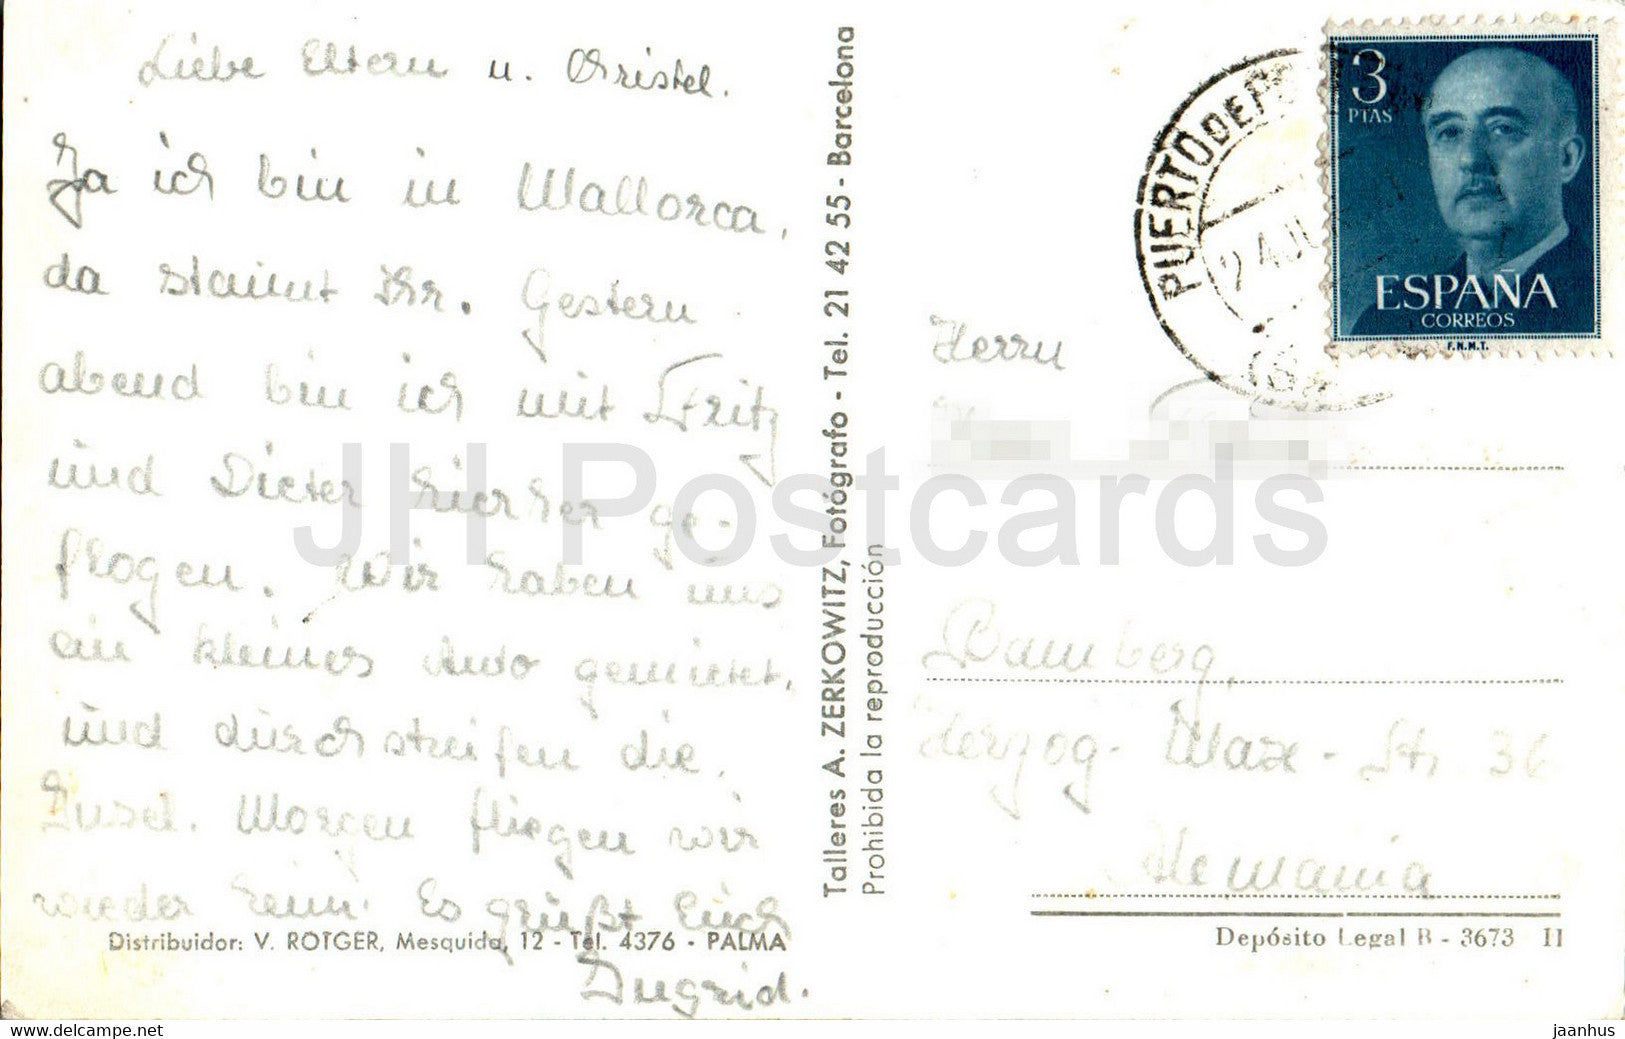 Liebe Eltern u. Christel.
Ja ich bin in Mallorca,
da staunt Ihr. Gestern
abend bin ich mit Fritz
und Dieter hierher ge-
flogen. Wir haben uns
ein kleines Auto gemietet,
und durchstreifen die
Insel. Morgen fliegen wir
wieder heim. Es grüßt Euch
Ingrid.
Distribuidor: V. ROTGER, Mesquida, 12 - Tel. 4376 - PALMA
Talleres A. ZERKOWITZ, Fotógrafo - Tel. 21 42 55 - Barcelona
Prohibida la reproducción
3
PTAS
ESPAÑA
CORREOS
F.N.M.T.
PUERTO DE
24 JU
Herrn
Bamberg,
Herzog-Max-Str. 36
Alemania
Depósito Legal B - 3673 II
JH Postcards
https://www.delcampe.net
jaanhus